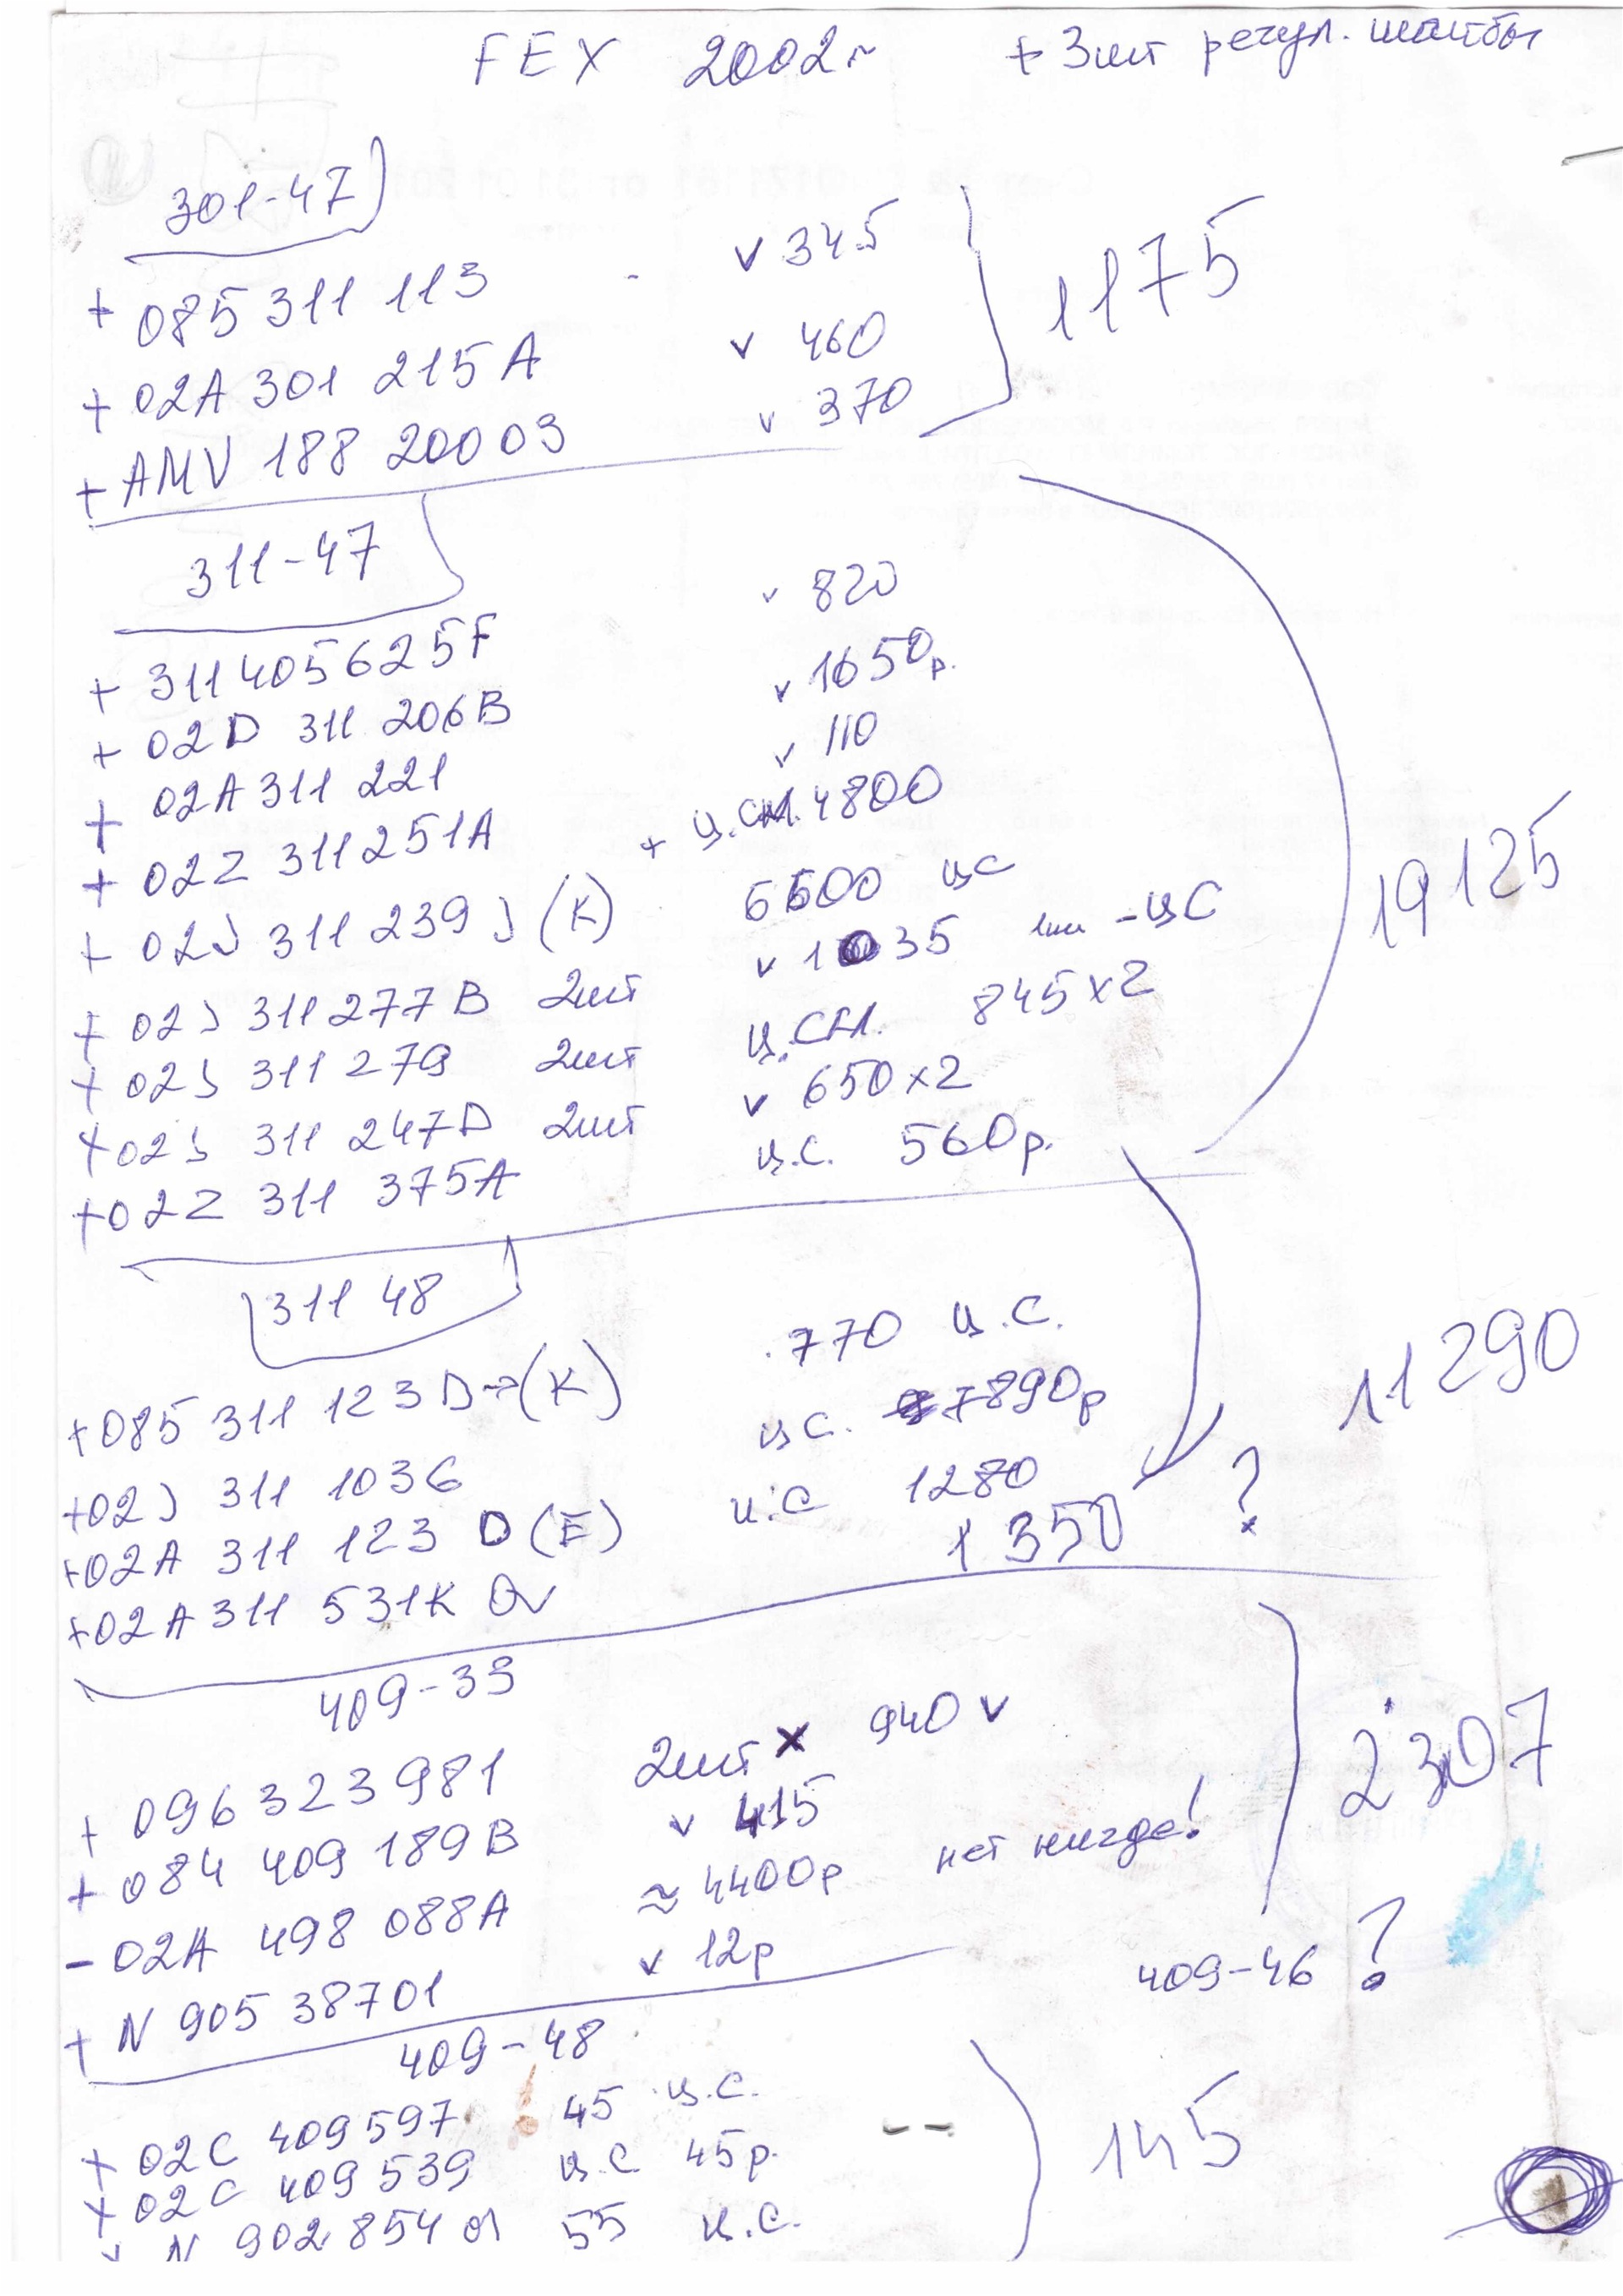 FEX 2002г + 3шт регул. шайбы
301-47
+ 085 311 113 - v 345
+ 02A 301 215 A v 460
+ AMV 188 20003 v 370
1175
311-47
+ 311405625F v 820
+ 02D 311 206B v 1650р.
+ 02A 311 221 v 110
+ 02Z 311251A + ц.см. 4800
+ 02J 311 239 J (K) 6600 цс
+ 02J 311 277B 2шт v 1035 1шт - цС
+ 02J 311 279 2шт ц.см. 845x2
+ 02J 311 247D 2шт v 650x2
+ 02Z 311 375A ц.с. 560р.
19125
311 48
+ 085 311 123 D→(K) 770 ц.С.
+ 02J 311 103G цс. 7890р
+ 02A 311 123 D (E) ц.с 1280
+ 02A 311 531K 1350 ?
11290
409-39
+ 096 323 981 2шт x 940 v
+ 084 409 189B v 415
- 02A 498 088A ≈ 4400р нет нигде!
+ N 905 38701 v 12р
2307
409-46 ?
409-48
+ 02C 409 597 45 ц.с.
+ 02C 409 539 ц.с 45р.
N 902 854 01 55 ц.с.
145